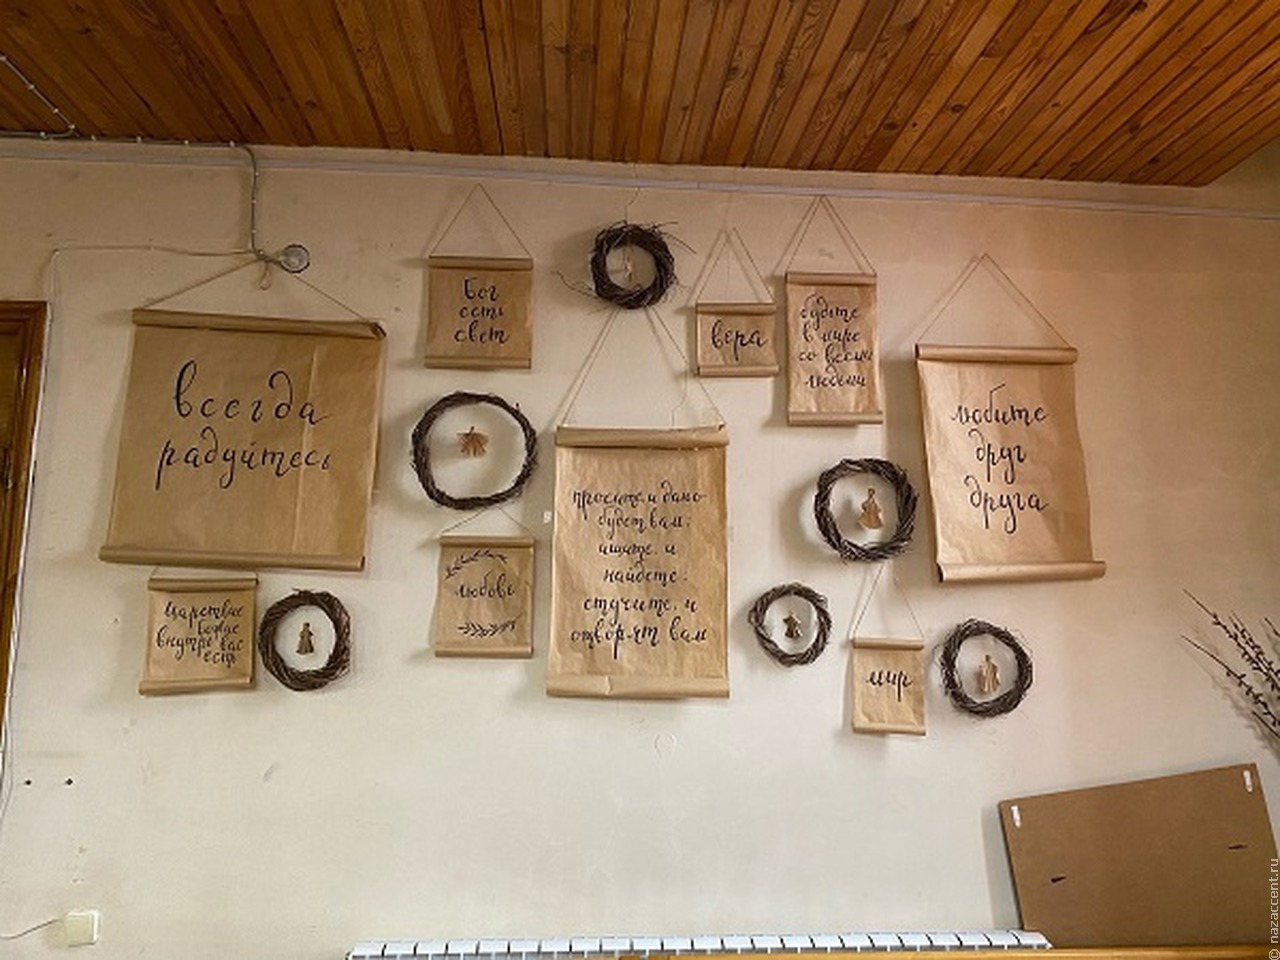 всегда
радуйтесь
Бог
есть
свет
вера
будьте
в мире
со всеми
людьми
любите
друг
друга
просите, и дано
будет вам;
ищите, и
найдете;
стучите, и
отворят вам
любовь
царствие
божие
внутрь вас
есть
мир
© nazaccent.ru